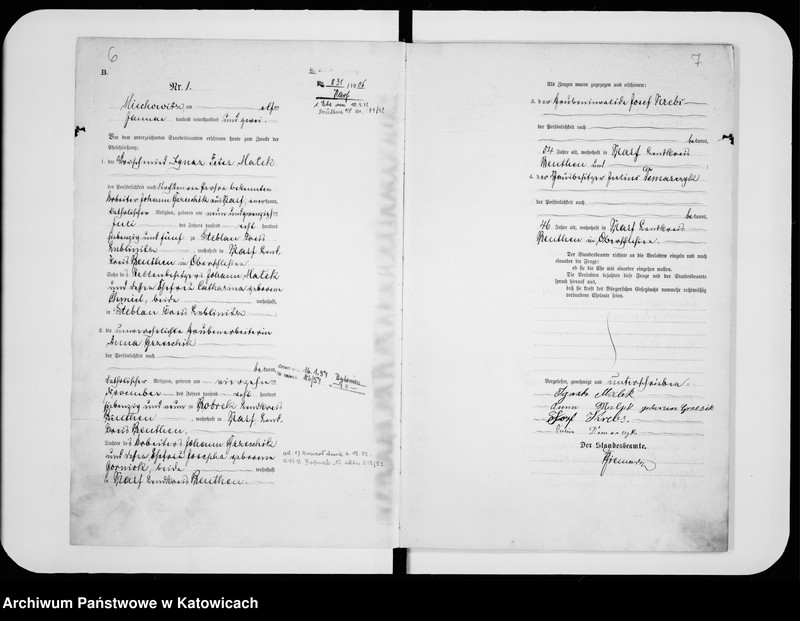 6
B.
Nr. 1.
Miechowitz, am elf ten
Januar tausend neunhundert und zwei
Vor dem unterzeichneten Standesbeamten erschienen heute zum Zwecke der
Eheschließung:
1. der Vorschmied Ignaz Peter Malek
der Persönlichkeit nach durch von Person bekannten
Arbeiter Johann Grzeschik aus Karf, anerkannt,
katholischer Religion, geboren am neun und zwanzigsten
Juli des Jahres tausend acht hundert
siebenzig und fünf in Steblau Kreis
Lublinitz, wohnhaft in Karf Land-
kreis Beuthen in Oberschlesien
Sohn des Stellenbesitzers Johann Malek
und dessen Ehefrau Catharina geborene
Chmiel, beide wohnhaft
in Steblau Kreis Lublinitz
2. die unverehelichte Grubenarbeiterin
Anna Grzeschik
der Persönlichkeit nach
bekannt,
katholischer Religion, geboren am vierzehnten
November des Jahres tausend acht hundert
siebenzig und neun in Bobrek Landkreis
Beuthen, wohnhaft in Karf Land-
kreis Beuthen,
Tochter des Arbeiters Johann Grzeschik
und dessen Ehefrau Josepha geborene
Gorniok, beide wohnhaft
in Karf Landkreis Beuthen.
Karf
16.1.59
7
Als Zeugen waren zugezogen und erschienen:
3. der Grubeninvalide Josef Krebs
der Persönlichkeit nach
bekannt,
54 Jahre alt, wohnhaft in Karf Landkreis
Beuthen und
4. der Hausbesitzer Julius Tomarczyk
der Persönlichkeit nach
bekannt,
46 Jahre alt, wohnhaft in Karf Landkreis
Beuthen in Oberschlesien.
Der Standesbeamte richtete an die Verlobten einzeln und nach
einander die Frage:
ob sie die Ehe mit einander eingehen wollen.
Die Verlobten bejahten diese Frage und der Standesbeamte
sprach hierauf aus,
daß sie kraft des Bürgerlichen Gesetzbuchs nunmehr rechtmäßig
verbundene Eheleute seien.
Vorgelesen, genehmigt und unterschrieben
Ignatz Malek
Anna Malek geborene Grzesik
Josef Krebs
Der Standesbeamte.
Archiwum Państwowe w Katowicach